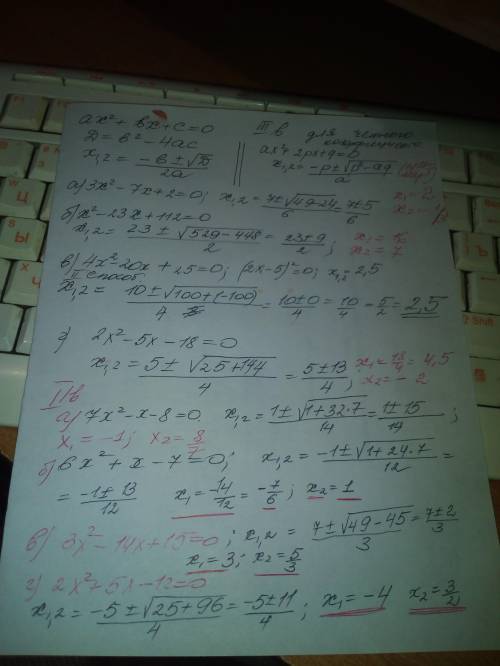 ax² + bx + c = 0
D = b² - 4ac
x₁,₂ = (-b ± √D)/2a
для четного
ax² + 2px + q = 0
x₁,₂ = (-p ± √(p² - aq))/a
а) 3x² - 7x + 2 = 0; x₁,₂ = (7 ± √(49-24))/6 = (7 ± 5)/6
x₁ = 2
б) x² - 23x + 112 = 0
x₁,₂ = (23 ± √(529 - 448))/2 = (23 ± 9)/2; x₁ = 16
x₂ = 7
в) 4x² - 20x + 25 = 0; (2x-5)² = 0; x₁,₂ = 2,5
II способ
x₁,₂ = (10 ± √(100 + (-100)))/4 = (10 ± 0)/4 = 10/4 = 5/2 = 2,5
г) 2x² - 5x - 18 = 0
x₁,₂ = (5 ± √(25 + 144))/4 = (5 ± 13)/4; x₁ = 18/4 = 4,5
x₂ = -2
II в
а) 7x² - x - 8 = 0, x₁,₂ = (1 ± √(1 + 32·7))/14 = (1 ± 15)/14;
x₁ = -1; x₂ = 8/7
б) 6x² + x - 7 = 0; x₁,₂ = (-1 ± √(1 + 24·7))/12 =
= (-1 ± 13)/12 x₁ = -14/12 = -7/6; x₂ = 1
в) 3x² - 14x + 15 = 0; x₁,₂ = (7 ± √(49 - 45))/3 = (7 ± 2)/3
x₁ = 3; x₂ = 5/3
г) 2x² + 5x - 12 = 0
x₁,₂ = (-5 ± √(25 + 96))/4 = (-5 ± 11)/4; x₁ = -4 x₂ = 3/2